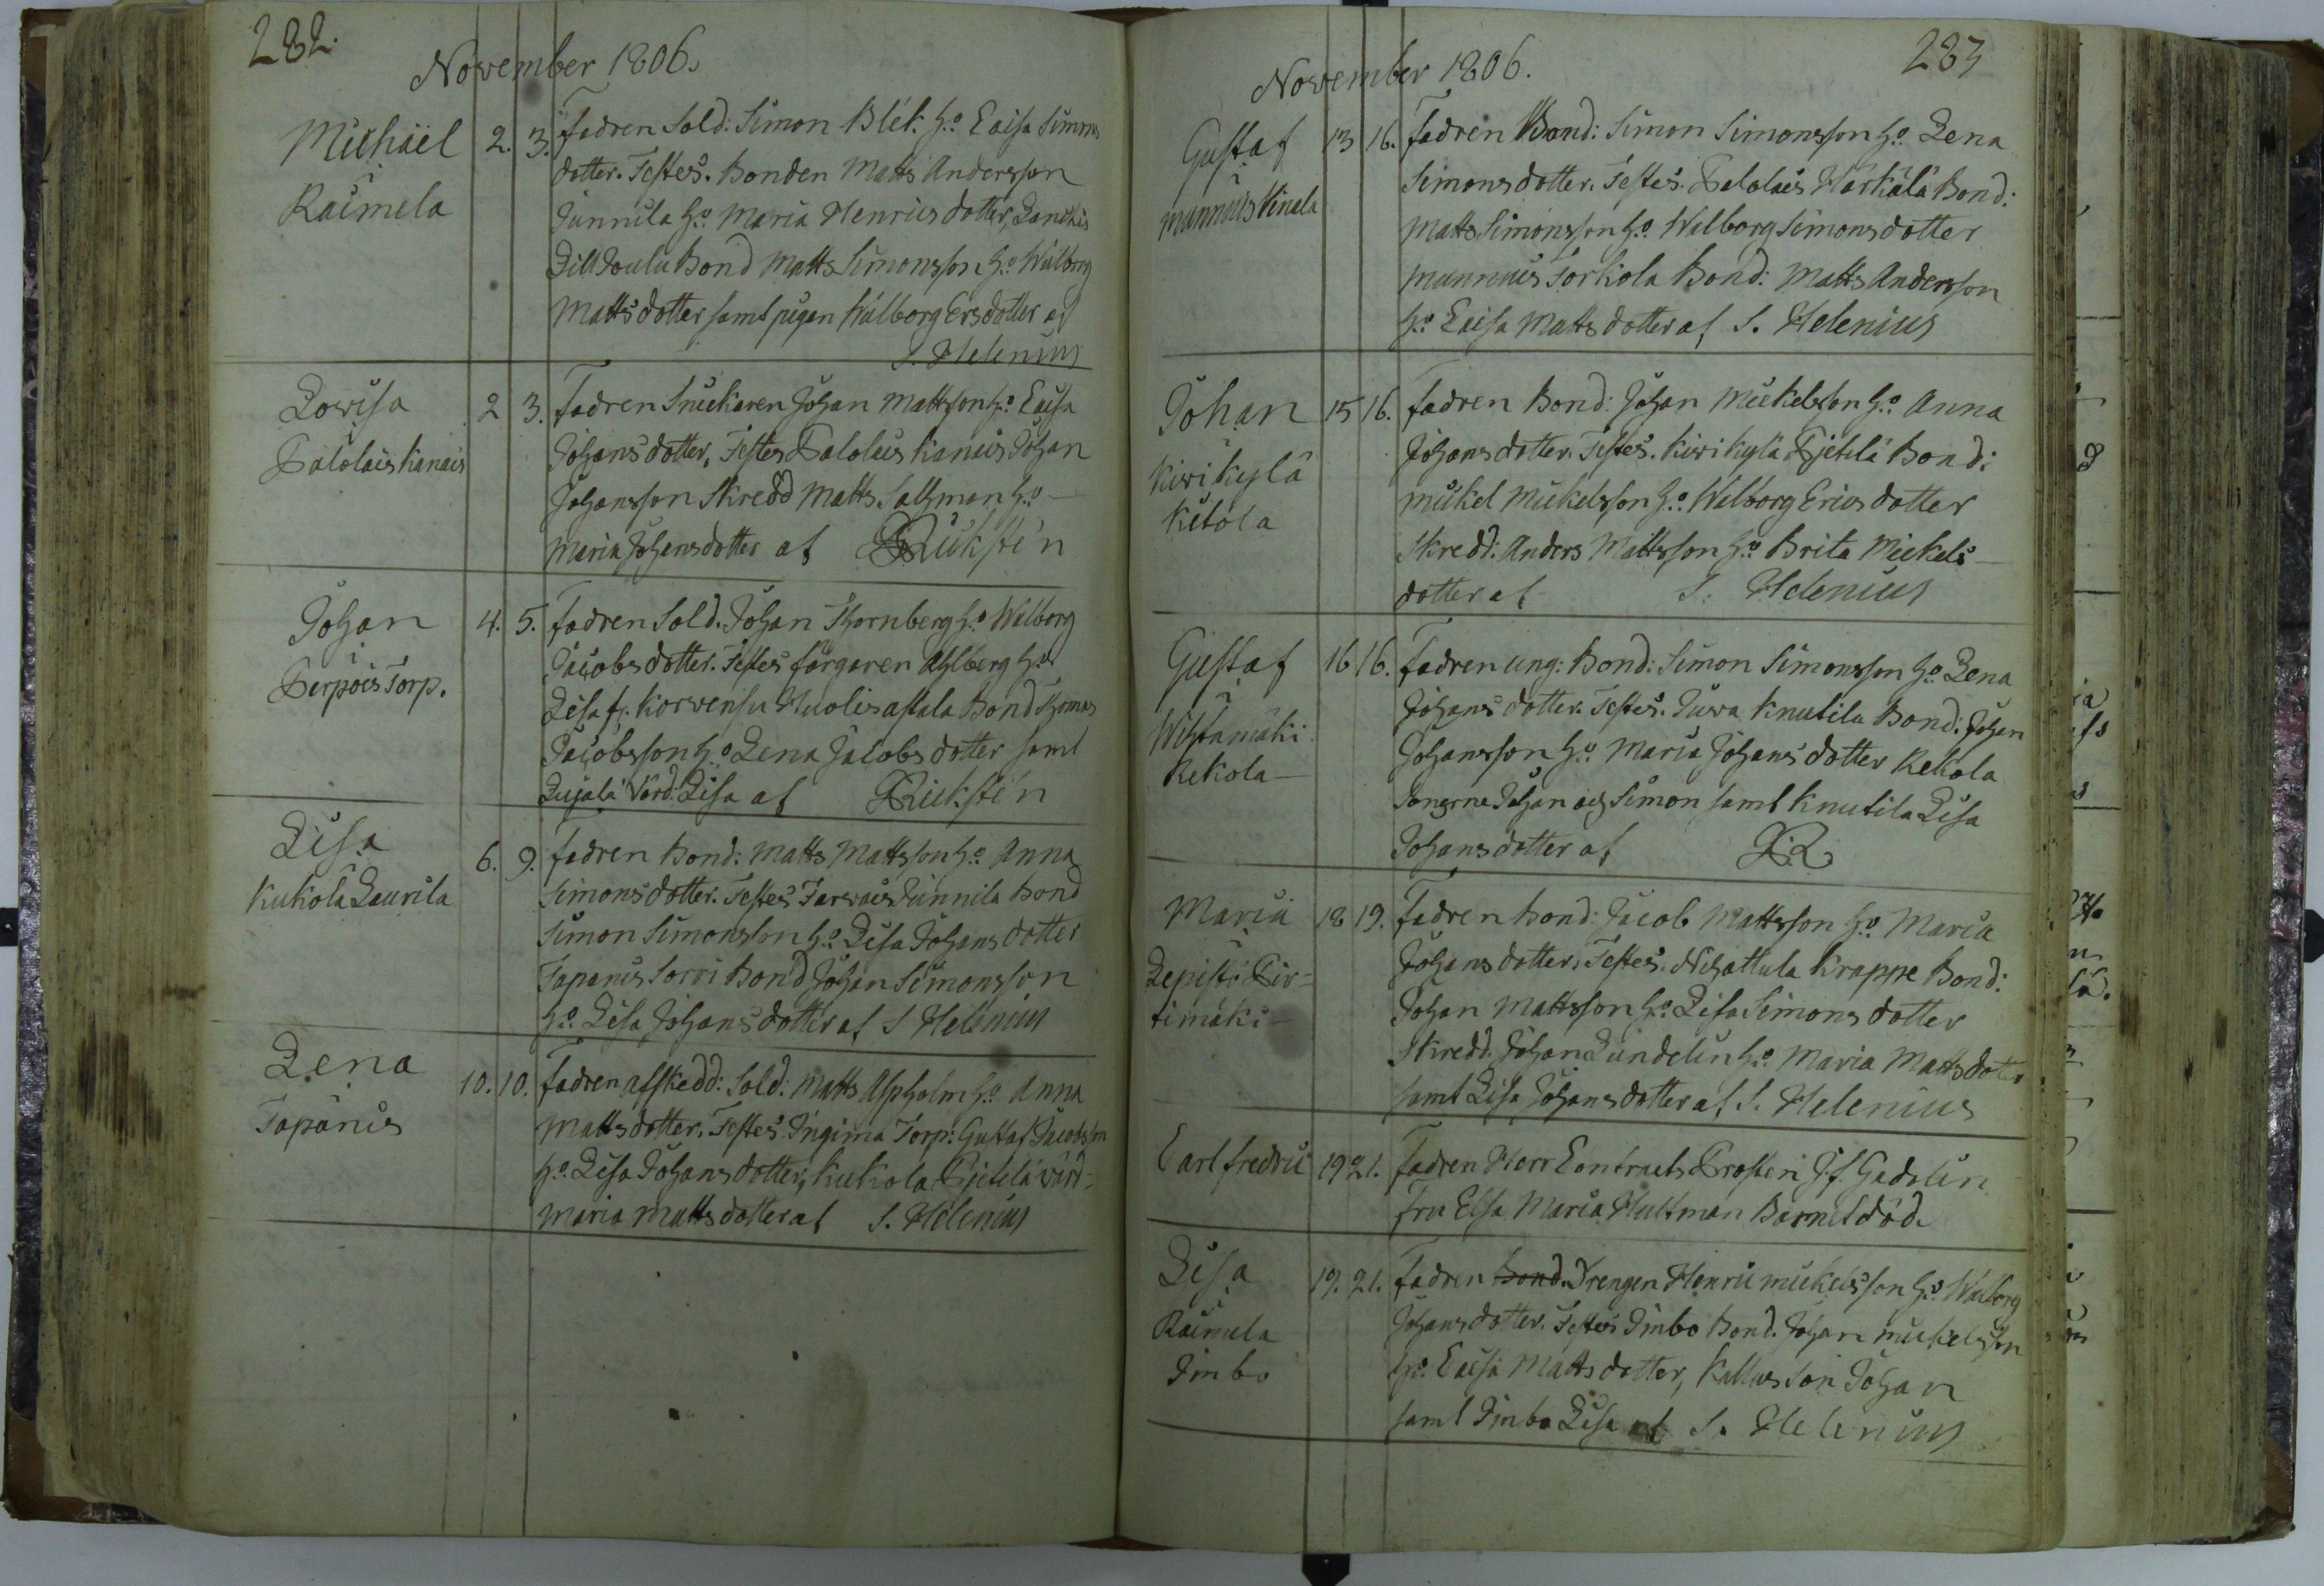 282.
November 1806.
Michäel
i
Raimela
2. 3. Fadren Sold: Simon Blék. H:o Caisa Simons
dotter. Testes. Bonden Matts Andersson
Junnila H:o Maria Henricsdotter,
Bond Matts Simonsson H:o Walborg
Mattsdotter samt pigan Walborg Ersdotter af
S. Helenius
Lovisa
Palolais Kanais
2 3. Fadren Snickaren Johan Mattsson H:o Caisa
Johansdotter, Testes Palolais Kanius Johan
Johansson Skredd Matts Saltzman H:o
Maria Johansdotter af Rickstén
Johan
i
Perpois Torp.
4. 5. Fadren Sold. Johan Thornberg H:o Walborg
Jacobsdotter. Testes färgaren Ahlberg H:o
Lisa f. Korvensu Huolis astala Bond Thomas
Jacobsson H:o Lena Jacobsdotter samt
Lujala värd: Lisa af Rickstén
Lisa
Kukola Laurila
6. 9. Fadren Bond: Matts Mattsson H:o Anna
Simonsdotter. Testes Junnila Bond
Simon Simonsson H:o Lisa Johansdotter
Tapanis Sorri Bond Johan Simonsson
H:o Lisa Johansdotter af S Helenius
Lena
Tapanis
10. 10. Fadren afskedd: Sold: Matts Aspholm H:o Anna
Mattsdotter. Testes Ingima Torp: Gustaf Jacobsson
H:o Lisa Johansdotter, Kukola Pietilä värd-
Maria Mattsdotter af S. Helenius
283
November 1806.
Gustaf
i
Mannais Vinala
13 16. Fadren Bond: Simon Simonsson H:o Lena
Simonsdotter. Testes. Palolais Härkälä Bond:
Matts Simonsson H:o Walborg Simonsdotter
Mannais Torkola Bond: Matts Andersson
H:o Caisa Mattsdotter af S. Helenius
Johan
i
Kirikylä
Kétola
15 16. Fadren Bond: Johan Mickelsson H:o Anna
Johansdotter. Testes. Kirikylä Pjetilä Bond:
Mickel Mickelsson H:o Walborg Ericsdotter
Skredd: Anders Mattsson H:o Brita Mickels-
dotter af S. Helenius
Gustaf
i
Wistamäki
Rekola
16 16. Fadren ung: Bond: Simon Simonsson H:o Lena
Johansdotter. Testes. Juva Knutila Bond: Johan
Johansson H:o Maria Johansdotter Rekola
Sönerne Johan och Simon samt Knutila Lisa
Johansdotter af J.R.
Maria
i
Lepistö Pir-
timäki
18 19. Fadren Bond: Jacob Mattsson H:o Maria
Johansdotter, Testes. Nihattula Krappe Bond:
Johan Mattsson H:o Lisa Simonsdotter
Skredd. Johan Lundelin H:o Maria Mattsdotter
samt Lisa Johansdotter af S. Helenius
Carl fredric
19 21. Fadren Herr Contracts Prosten J. f. Gadolin
Fru Elsa Maria Hultman Barnet död.
Lisa
i
Raimela
Jimbo
19. 21. Fadren Bond. Drengen Henric Mickelsson H:o Walborg
Johansdotter. Testes Jimbo Bond. Johan Mickelsson
H:o Caisa Mattsdotter, Kallus Son Johan
samt Jimbo Lisa af S. Helenius